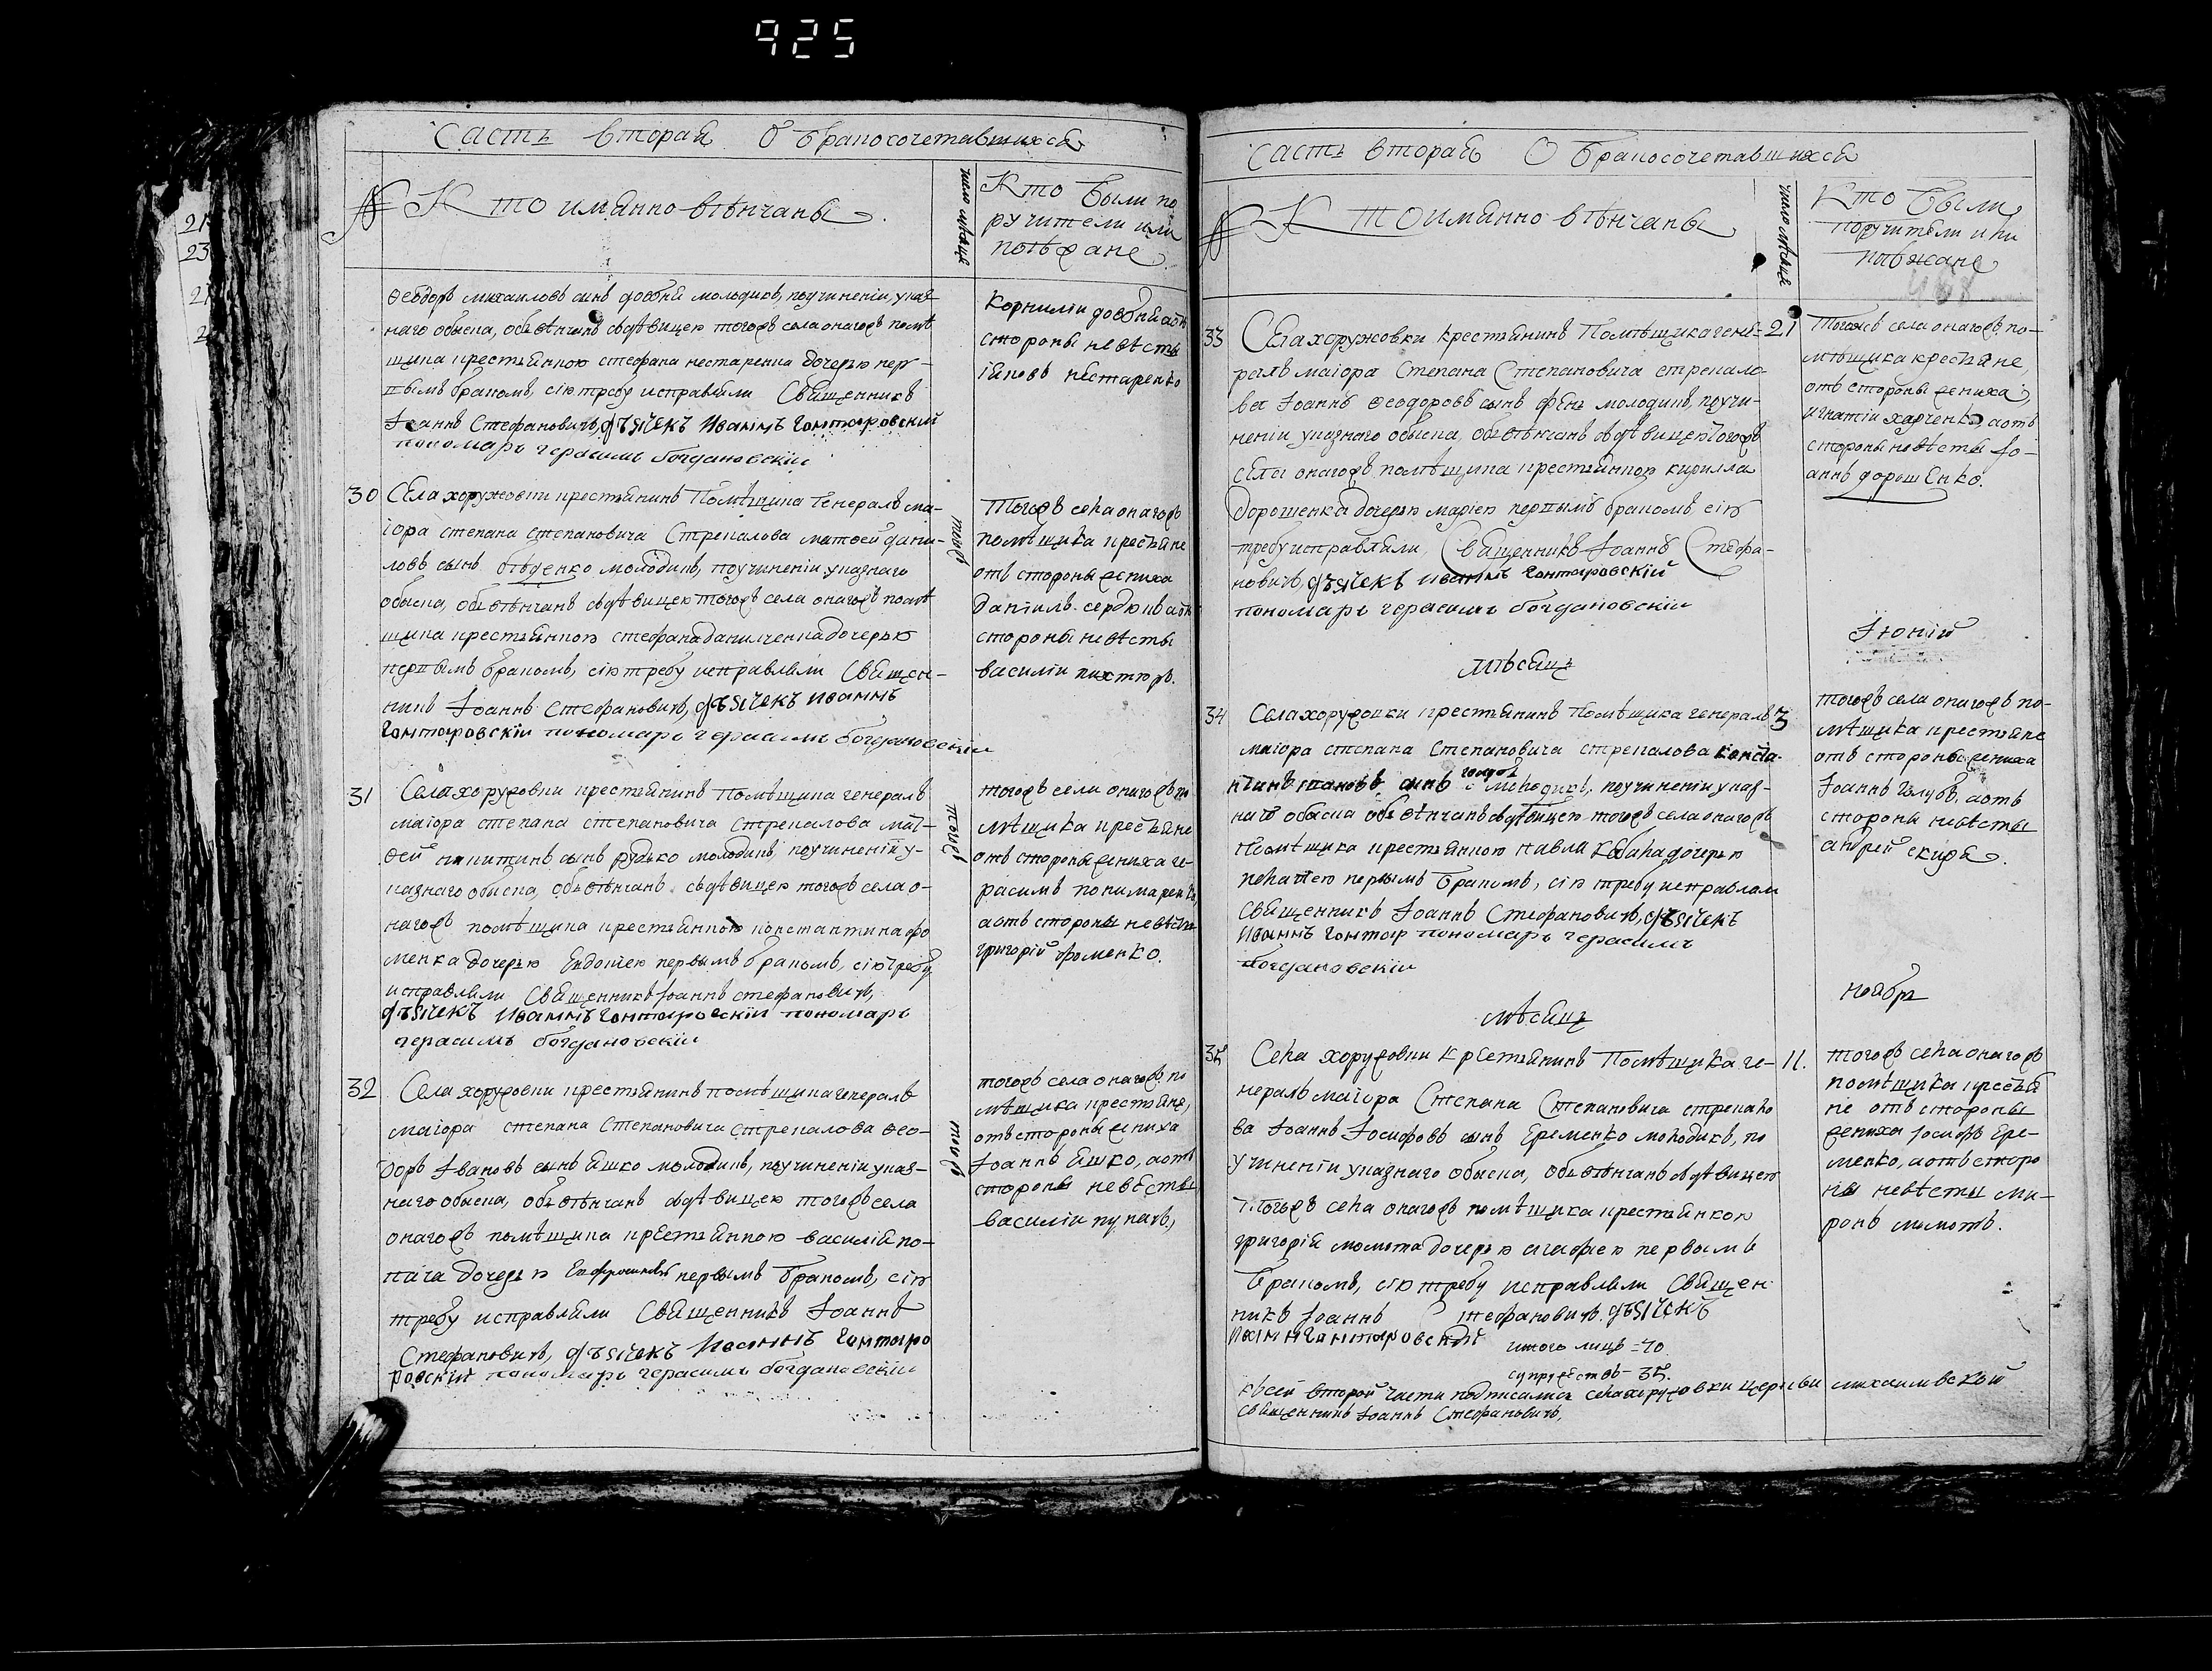 925
21
23
21
2
Часть вторая О бракосочетавшихся
№ Кто имянно вѣнчаны
число мѣсяцъ
Кто были по
ручители или
поѣзжане
Ѳеодоръ михаиловъ сынъ довбня молодикъ, поучиненіи указ-
наго обыска, обвѣнчанъ здѣвицею тогожъ села онагожъ помѣ
щика крестьянкою стефана нестаренка дочерью пер-
вымъ бракомъ, сію требу исправляли Священникъ
Іоаннъ Стефановичъ, дьячекъ Иваннъ Гонтаровскій
пономарь герасимъ богдановскіи
Корниліи довбня аотъ
стороны невѣсты
іяковъ нестаренко
30 Села хоружовки крестьянинъ Помѣщика Генералъ ма-
іора степана степановича Стрекалова матѳей дани-
ловъ сынъ молодикъ, поучиненіи указнаго
обыска, обвѣнчанъ здѣвицею тогожъ села онагожъ помѣ
щика крестьянкою стефана данилченка дочерью
первымъ бракомъ, сію требу исправляли Священ-
никъ Іоаннъ Стефановичъ, дьячекъ Иваннъ
Гонтаровскіи пономарь герасимъ богдановскіи
тогожъ
Тогожъ села онагожъ
помѣщика крестьяне
отъ стороны жениха
Даніилъ сердюкъ аотъ
стороны невѣсты
василіи
31 Села хоружовки крестьянинъ Помѣщика генералъ
маіора степана степановича стрекалова мат-
ѳей никитинъ сынъ рудько молодикъ, поучиненіи у-
казнаго обыска, обвѣнчанъ здѣвицею тогожъ села о-
нагожъ помѣщика крестьянкою константина фо
менка дочерью Евдокіею первымъ бракомъ, сію требу
исправляли Священникъ Іоаннъ стефановичъ,
дьячекъ Иваннъ Гонтаровскіи пономарь
герасимъ богдановскіи
тогожъ
тогожъ села онагожъ по
мѣщика крестьяне
отъ стороны жениха ге-
расимъ пономаренко,
аотъ стороны невѣсты
григорій фоменко.
32 Села хоружовки крестьянинъ помѣщика генералъ
маіора степана Степановича стрекалова ѳео-
доръ Івановъ сынъ яшко молодикъ, поучиненіи указ-
наго обыска, обвѣнчанъ здѣвицею тогожъ села
онагожъ помѣщика крестьянкою василія ко-
пача дочерью первымъ бракомъ, сію
требу исправляли Священникъ Іоаннъ
Стефановичъ, дьячекъ Иваннъ Гонтаро
ровскій пономарь герасимъ богдановскіи
тогожъ
тогожъ села онагожъ по
мѣщика крестьяне,
отъ стороны жениха
Іоаннъ яшко, аотъ
стороны невѣсты
василіи
Часть вторая О бракосочетавшихся
№ Кто имянно вѣнчаны
число мѣсяцъ
Кто были
поручители или
поѣзжане
33 Села хоружовки крестьянинъ Помѣщика гене- 21
ралъ маіора Степана Степановича стрекало-
ва Іоаннъ Ѳеодоровъ сынъ молодикъ, поучи-
неніи указнаго обыска, обвѣнчанъ здѣвицею тогожъ
села онагожъ помѣщика крестьянкою кирилла
Дорошенка дочерью маріею первымъ бракомъ сію
требу исправляли, Священникъ Іоаннъ Стефа-
новичъ, дьячекъ Иваннъ Гонтаровскій
пономарь герасимъ богдановскіи
Тогожъ села онагожъ по-
мѣщика крестьяне,
отъ стороны жениха
игнатіи харченко, аотъ
стороны невѣсты Іо-
аннъ дорошенко.
мѣсяцъ Іюній
34 Села хоружовки крестьянинъ Помѣщика генералъ 3
маіора степана Степановича стрекалова конста-
нтинъ сынъ голубъ молодикъ, поучиненіи указ-
наго обыска обвѣнчанъ здѣвицею тогожъ села онагожъ
Помѣщика крестьянкою павла дочерью
пелагіею первымъ бракомъ, сію требу исправляли
Священникъ Іоаннъ Стефановичъ, дьячекъ
Иваннъ Гонтар пономарь герасимъ
богдановскіи
тогожъ села онагожъ по-
мѣщика крестьяне
отъ стороны жениха
Іоаннъ голубъ, аотъ
стороны невѣсты
андрей
мѣсяцъ ноябрь
35 Села хоружовки крестьянинъ Помѣщика ге- 11.
нералъ маіора Степана Степановича стрекало
ва Іоаннъ Іосифовъ сынъ Еременко молодикъ, по
учиненіи указнаго обыска, обвѣнчанъ здѣвицею
тогожъ села онагожъ помѣщика крестьянкою
григорія момота дочерью агафіею первымъ
бракомъ, сію требу исправляли Священ
никъ Іоаннъ Стефановичъ. дьячекъ
Иваннъ Гонтаровскій
тогожъ села онагожъ
помѣщика крестья
не отъ стороны
жениха Іосифъ Ере-
менко, аотъ сторо
ны невѣсты ми-
ронъ момотъ.
итого лицъ = 70
супружествъ - 35.
Ксей второй части подписался села хоружовки церкви михаиловской
священникъ Іоаннъ Стефановичъ,